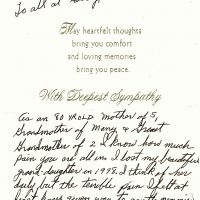 To all of
May heartfelt thoughts
bring you comfort
and loving memories
bring you peace.
With Deepest Sympathy
As an 80 YR OLD Mother of 5,
Grandmother of Many & Great
Grandmother of 2 I know how much
pain you are all in. I lost my beautiful
granddaughter in 1998. I think of her
daily but the terrible pain I felt at